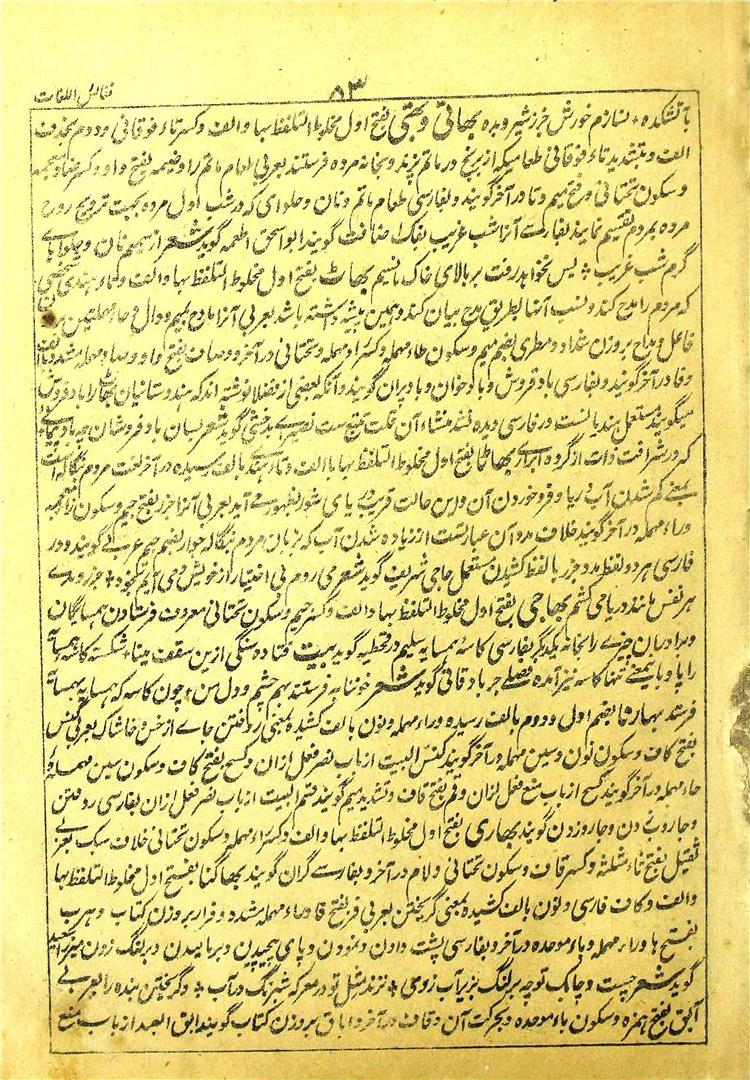 نفائس اللغات
۵۳
بآتشکده * نسازم خورش جز شیر و بره بهاتی و بهتی بفتح اول مخلوط التلفظ بها و الف و کسر تاء فوقانی و دوم بحذف
الف و بتشدید تاء فوقانی طعامیکه از برنج در ماتم پزند و بخانه مرده فرستند بعربی طعام ماتم را وضیمه بفتح واو و کسر ضاد معجمه
و سکون تحتانی و فتح میم و تا در آخر گویند و بفارسی طعام ماتم و نان و حلوای که در شب اول مرده بجهت ترویح روح
مرده بمردم تقسیم نمایند بفارسے آنرا شب غریب بفک اضافت گویند ابو اسحق اطعمه گوید شعر از سیم نان و حلوا باے
گرم شب غریب * پس نخواهد رفت بر بالای خاک ما نسیم بهاٹ بفتح اول مخلوط التلفظ بها و الف و تاء هندی شخصی
که مردم را مدح کند و نسب آنها بطریق مدح بیان کند و همین پیشه داشته باشد بعربی آنرا مادح بمیم و دال و حا مهملتین بر
فاعل و مداح بر وزن شداد و مطری بضم میم و سکون طاء مهمله و کسر راء مهمله و تحتانی در آخر و وصاف بفتح واو و صاد مهمله مشدد با الف
و فا در آخر گویند و بفارسی باد فروش و باد خوان و باد پران گویند و آنکه بعضی از فضلا نوشته اند که هندوستانیان بهاٹ را باد فروش
میگویند مستعمل هندیانست در فارسی دیده نشد منشاء آن قلت تتبع ست نصیرے بدخشی گوید شعر بسان باد فروشان چه باد پیمائے
که در شرافت ذات از گروه ابراری بهاٹا بفتح اول مخلوط التلفظ بها با الف و تاء هندی بالف رسیده در آخر لغت مردم بنگاله است
بمعنے کم شدن آب دریا و فرو خوردن آن و این حالت قریب دریای شور بظهور مے آید بعربی آنرا جزر بفتح جیم و سکون زاء معجمه
و راء مهمله در آخر گویند خلاف مد و آن عبارتست از زیاده شدن آب که بزبان مردم بنگاله جوار بضم جیم عربے گویند و در
فارسی هر دو لفظ مد و جزر با لفظ کشیدن مستعمل حاجی شریف گوید شعر می روم بی اختیار از خویش و می آیم بخود * جزر و مدے
هر نفس مانند دریا می کشم بهاجی بفتح اول مخلوط التلفظ بها و الف و کسر جیم و سکون تحتانی معروف فرستادن همسایگان
و برادران چیزے را بخانه یکدیگر بفارسی کاسه همسایه سلیم در قحطیه گوید بیت فتاده سنگی ازین سقف مینا * شکسته کاسه همسایه
را پا و بمعنے تنها کاسه نیز آمده فصلے جرباد قانی گوید شعر خوننابه فرستند بهم چشم و دل من * چون کاسه که همسایه به همسایه
فرستد بهارنا بضم اول و دوم بالف رسیده و راء مهمله و نون بالف کشیده بمعنی رفتن جاے از خس و خاشاک بعربی کنس
بفتح کاف و سکون نون و سین مهمله در آخر گویند کنس البیت از باب نصر فعل ازان و کسح بفتح کاف و سکون سین مهمله و
حاء مهمله در آخر گویند کسح از باب منع فعل ازان و قم بفتح قاف و تشدید میم گویند قم البیت از باب نصر فعل ازان بفارسی روفتن
و جاروب زدن و جا روزدن گویند بهاری بفتح اول مخلوط التلفظ بها و الف و کسر راء مهمله و سکون تحتانی خلاف سبک بعربے
ثقیل بفتح ثاء مثلثه و کسر قاف و سکون تحتانی و لام در آخر و بفارسے گران گویند بهاگنا بفتح اول مخلوط التلفظ بها
و الف و کاف فارسی و نون بالف کشیده بمعنی گریختن بعربی فر بفتح فا و راء مهمله مشدد و فرار بر وزن کتاب و هرب
بفتح ها و راء مهمله و باء موحده در آخر و بفارسی پشت دادن و نمودن و پای پیچیدن و برمالیدن و در پلنگ زدن میر سعید
گوید شعر چست و چابک توچه بر پلنگ بزیرآب زومی * نزند مثل تو در معرکه شبرنگ در آب * و گریختن بنده را بعربے
آبق بفتح همزه و سکون باء موحده و بحرکت آن و قاف در آخر و اباق بر وزن کتاب گویند ابق العبد از باب منع